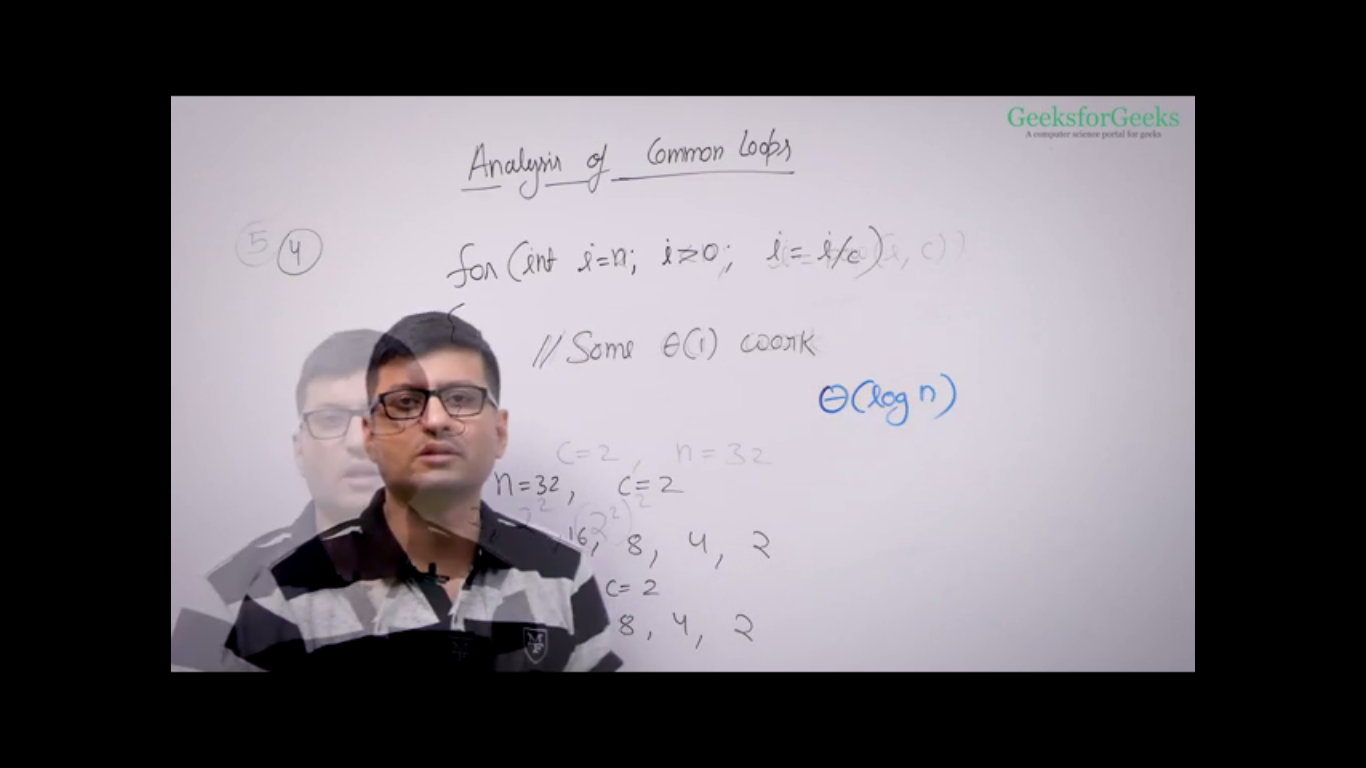 GeeksforGeeks
A computer science portal for geeks
Analysis of Common Loops
5 4
for (int i=n; i>0; i= i/c)
i, c))
{
// Some θ(1) work
θ(log n)
c=2, n=32
n=32, c=2
2² (2²)²
16, 8, 4, 2
c=2
8, 4, 2